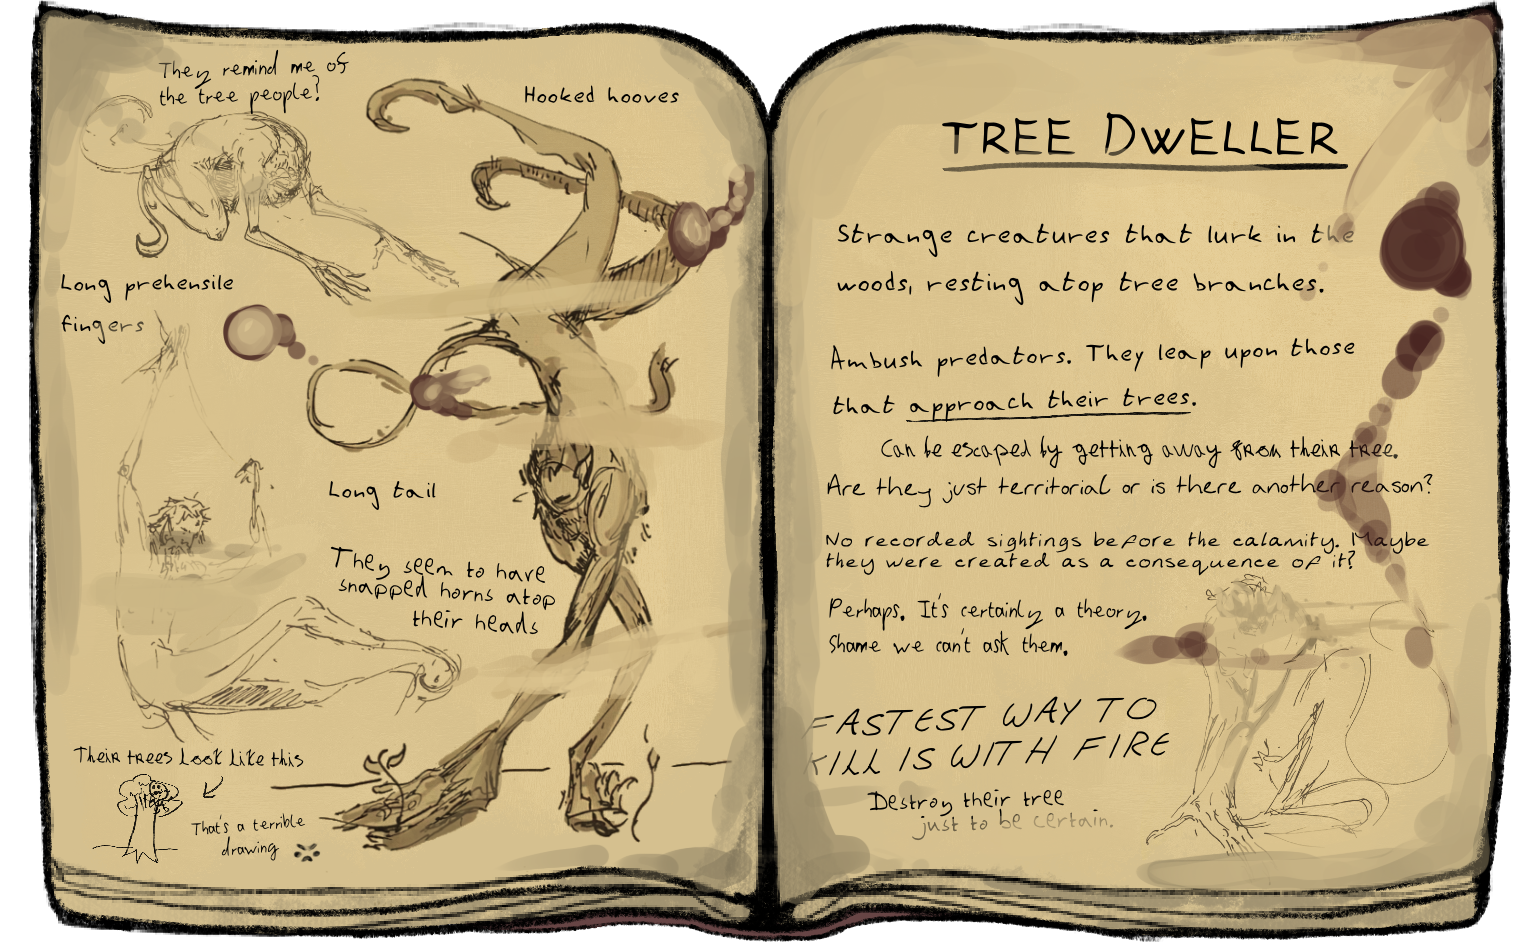 They remind me of
the tree people?
Hooked hooves
Long prehensile
fingers
Long tail
They seem to have
snapped horns atop
their heads
Their trees look like this
That's a terrible
drawing
TREE DWELLER
Strange creatures that lurk in the
woods, resting atop tree branches.
Ambush predators. They leap upon those
that approach their trees.
Can be escaped by getting away from their tree.
Are they just territorial or is there another reason?
No recorded sightings before the calamity. Maybe
they were created as a consequence of it?
Perhaps. It's certainly a theory.
Shame we can't ask them.
FASTEST WAY TO
KILL IS WITH FIRE
Destroy their tree
just to be certain.